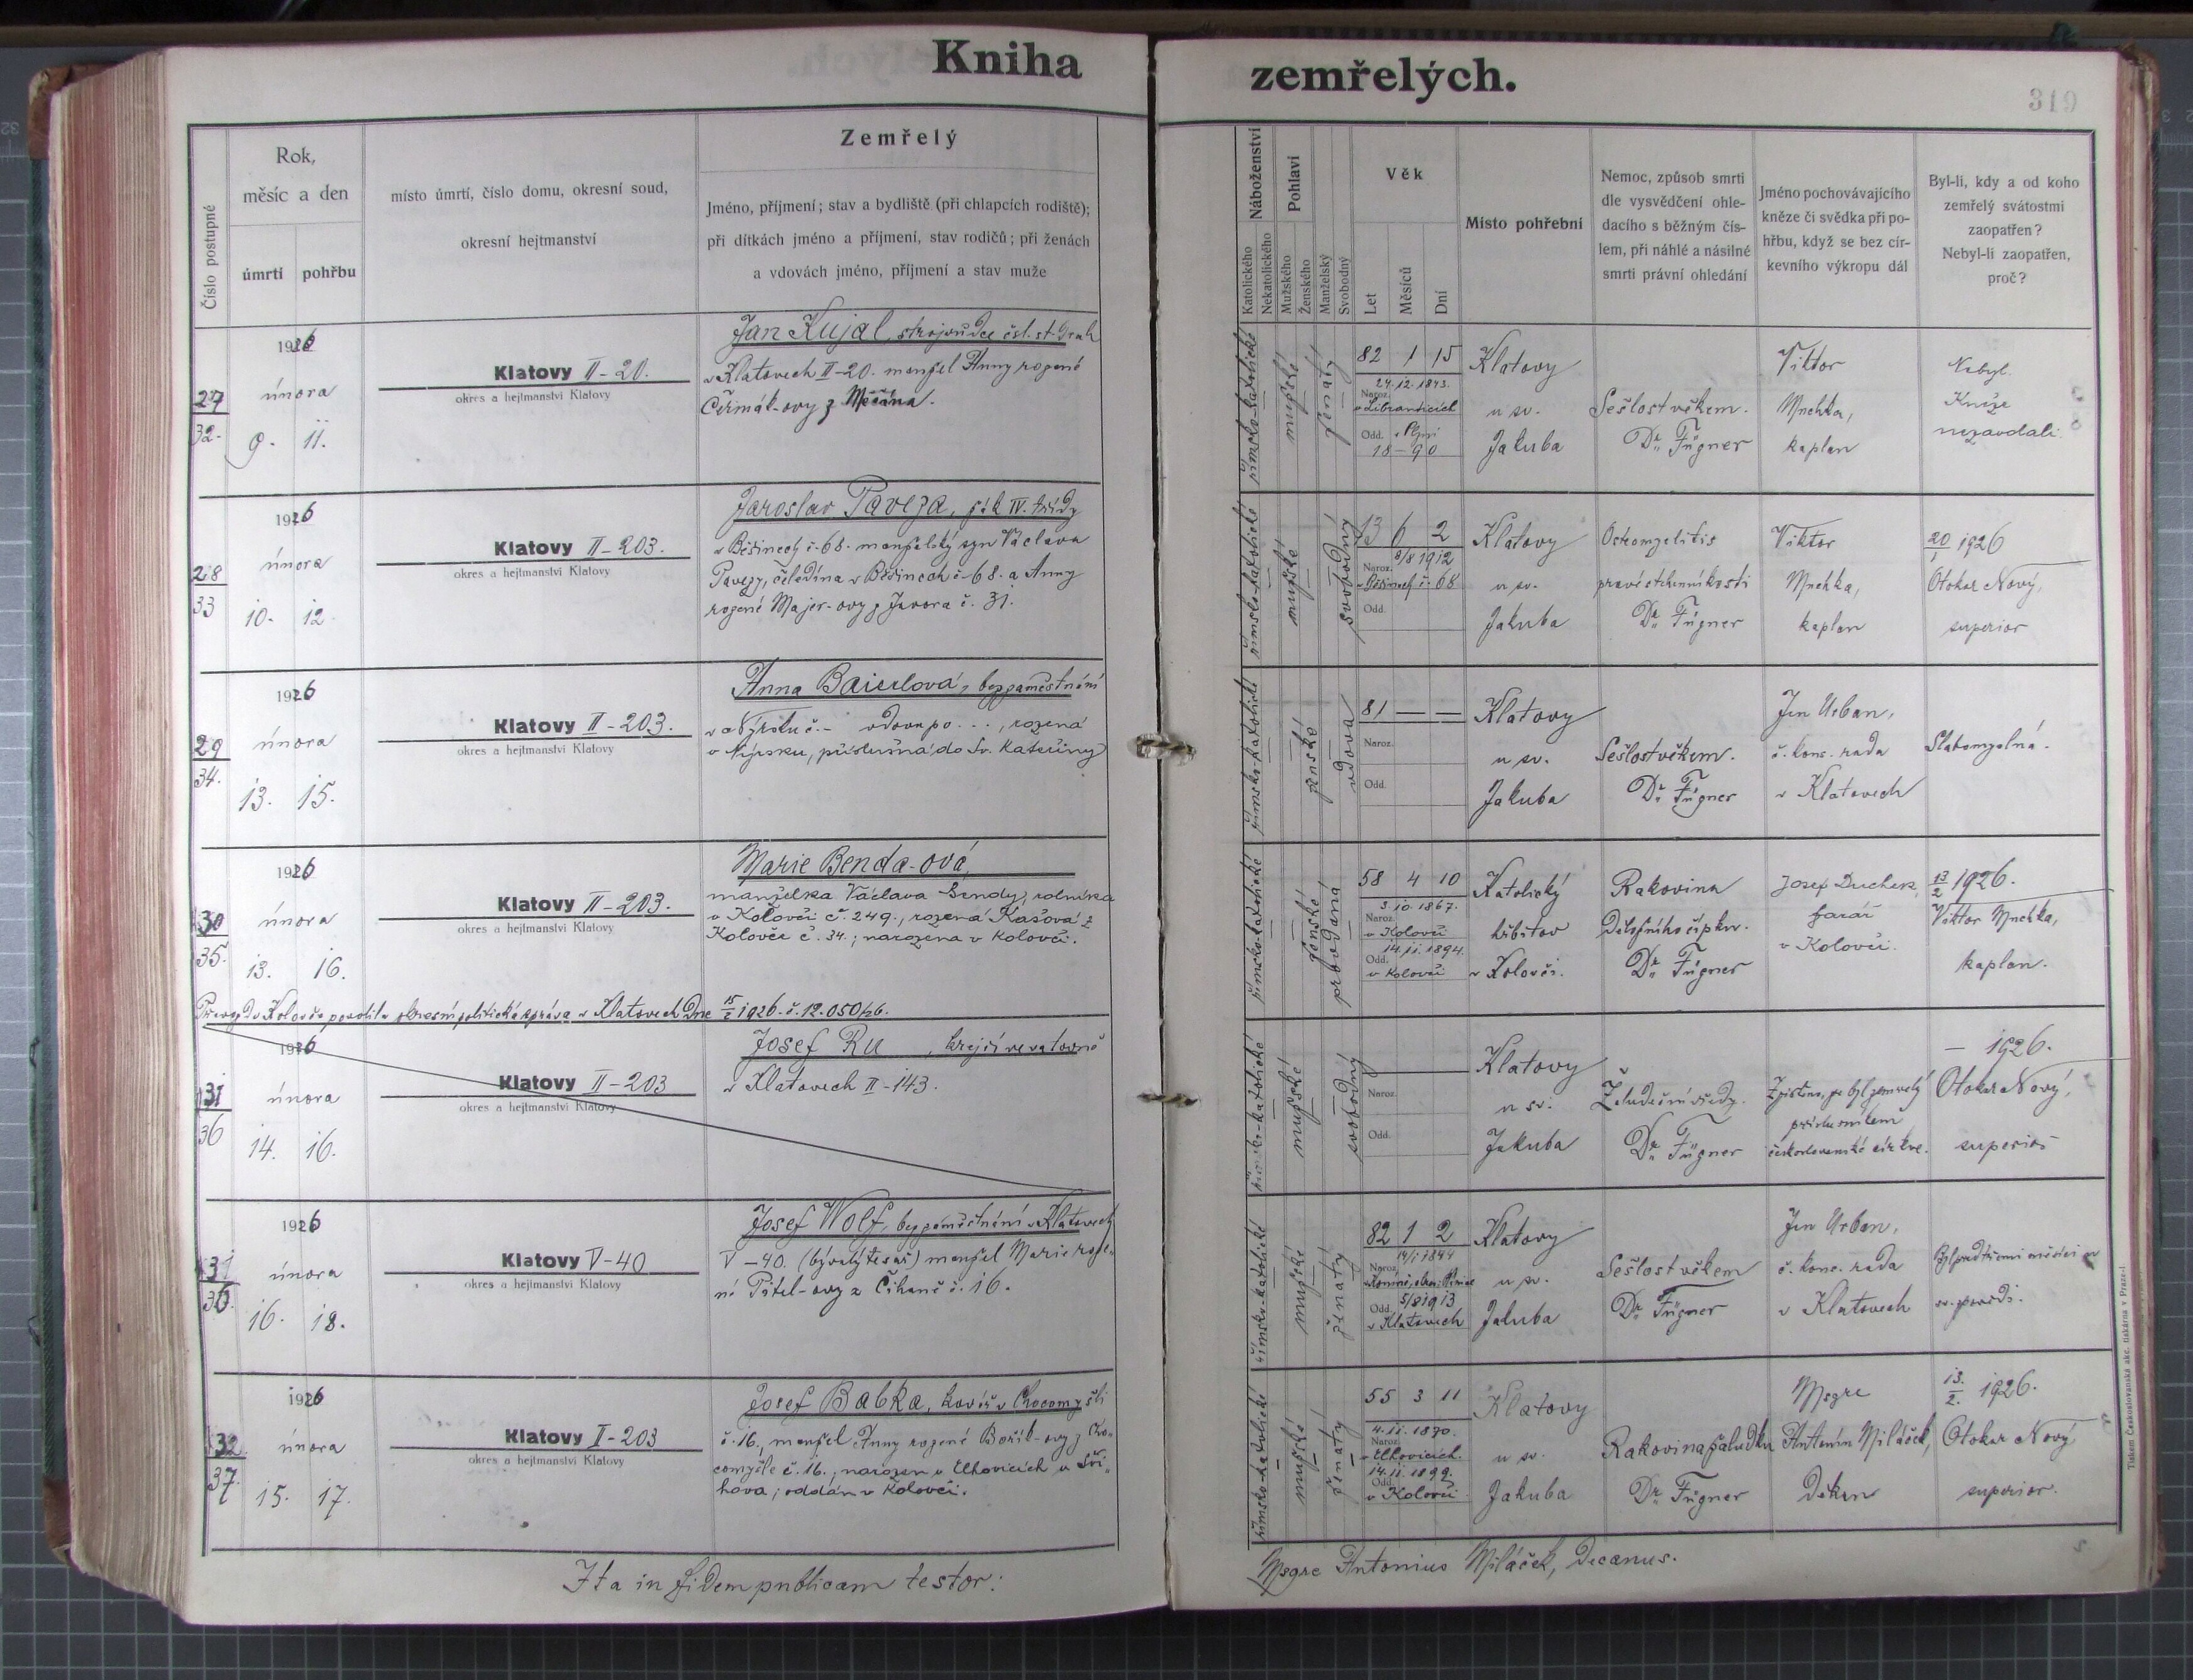 Kniha zemřelých.
319
Číslo postupné
Rok,
měsíc a den
úmrtí
pohřbu
místo úmrtí, číslo domu, okresní soud,
okresní hejtmanství
Zemřelý
Jméno, příjmení; stav a bydliště (při chlapcích rodiště);
při dítkách jméno a příjmení, stav rodičů; při ženách
a vdovách jméno, příjmení a stav muže
Náboženství
Katolického
Nekatolického
Pohlaví
Mužského
Ženského
Manželský
Svobodný
Věk
Let
Měsíců
Dní
Místo pohřební
Nemoc, způsob smrti
dle vysvědčení ohle-
dacího s běžným čís-
lem, při náhlé a násilné
smrti právní ohledání
Jméno pochovávajícího
kněze či svědka při po-
hřbu, když se bez cír-
kevního výkropu dál
Byl-li, kdy a od koho
zemřelý svátostmi
zaopatřen?
Nebyl-li zaopatřen,
proč?
27
32.
1926
února
9. 11.
Klatovy II-20.
okres a hejtmanství Klatovy
Jan Kujal, strojvůdce čsl. st. drah
v Klatovech II-20. manžel Anny rozené
Čermák-ovy z
římsko-katolické
mužské
ženatý
82 1 15
24.12.1843.
Naroz.
Odd.
18-90
Klatovy
u sv.
Jakuba
Sešlost věkem.
Dr. Fügner
Viktor
Mnehka,
kaplan
Nebyl.
Kněze
nezavolali.
28
33
1926
února
10. 12.
Klatovy II-203.
okres a hejtmanství Klatovy
Jaroslav Paveza, žák IV. třídy
v Běšinech č. 68. manželský syn Václava
Pavezy, čeledína v Běšinech č-68. a Anny
rozené Majer-ovy z Javora č. 31.
římsko-katolické
mužské
svobodný
13 6 2
8/8 1912
Naroz.
v Běšinech č. 68
Odd.
Klatovy
u sv.
Jakuba
Osteomyelitis
pravé stehenní kosti
Dr. Fügner
Viktor
Mnehka,
kaplan
20/1 1926
Otokar Nový,
superior
29
34.
1926
února
13. 15.
Klatovy II-203.
okres a hejtmanství Klatovy
Anna Baierlová, bez zaměstnání
v Nýrsku č.- vdova po . . . , rozená
v Nýrsku, příslušná do Sv. Kateřiny
římsko-katolické
ženské
vdova
81 — —
Naroz.
Odd.
Klatovy
u sv.
Jakuba
Sešlost věkem.
Dr. Fügner
Jan Urban,
č. kons. rada
v Klatovech
Slabomyslná.
30
35.
1926
února
13. 16.
Klatovy II-203.
okres a hejtmanství Klatovy
Marie Benda-ová,
manželka Václava Bendy, rolníka
v Kolovči č. 249., rozená Kašová z
Kolovče č. 34.; narozena v Kolovči.
Převoz do Kolovče povolila okresní politická správa v Klatovech dne 15/2 1926. č. 12.050/26.
římsko-katolické
ženské
provdaná
58 4 10
3.10.1867.
Naroz.
v Kolovči
14.11.1894.
Odd.
v Kolovči
Katolický
hřbitov
v Kolovči.
Rakovina
Děložního čípku.
Dr. Fügner
Josef Duchek,
farář
v Kolovči.
13/2 1926.
Viktor Mnehka,
kaplan.
31
36
1926
února
14. 16.
Klatovy II-203
okres a hejtmanství Klatovy
Josef Ru , krejčí ve vatovně
v Klatovech II-143.
římsko-katolické
mužské
svobodný
Naroz.
Odd.
Klatovy
u sv.
Jakuba
Žaludeční vředy.
Dr. Fügner
Zjištěno, že byl zemřelý
příslušníkem
československé církve.
— 1926.
Otokar Nový,
superior
31
36.
1926
února
16. 18.
Klatovy V-40
okres a hejtmanství Klatovy
Josef Wolf, bez zaměstnání v Klatovech
V-40. (bývalý tesař) manžel Marie roze-
né Pitel-ovy z Čihaně č. 16.
římsko-katolické
mužské
ženatý
82 1 2
14/1 1844
Naroz.
Odd. 5/8 1913
v Klatovech
Klatovy
u sv.
Jakuba
Sešlost věkem
Dr. Fügner
Jan Urban,
č. kons. rada
v Klatovech
Byl před třemi měsíci u
sv. zpovědi.
32
37.
1926
února
15. 17.
Klatovy I-203
okres a hejtmanství Klatovy
Josef Babka, kovář v Chocomyšli
č. 16., manžel Anny rozené Bořík-ovy z Cho-
comyšle č. 16.; narozen v Elhovicích u Švi-
hova; oddán v Kolovči.
římsko-katolické
mužské
ženatý
55 3 11
4.11.1870.
Naroz.
v Elhovicích.
14.11.1899.
Odd.
v Kolovči
Klatovy
u sv.
Jakuba
Rakovina žaludku
Dr. Fügner
Msgre
Antonín Miláček,
Děkan
13/2 1926.
Otokar Nový
superior.
Ita in fidem publicam testor:
Msgre Antonius Miláček, Decanus.
Tiskem Českoslovanská akc. tiskárna v Praze-I